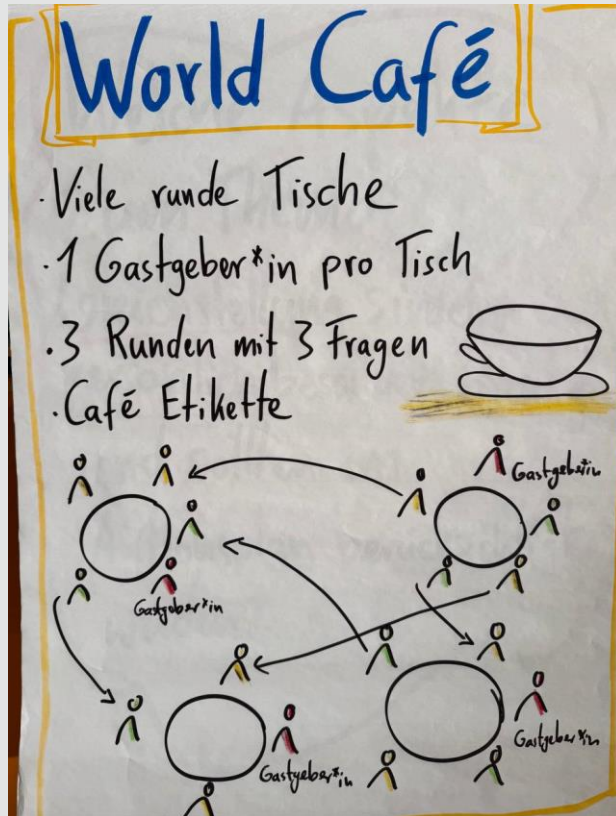 World Café
· Viele runde Tische
· 1 Gastgeber*in pro Tisch
· 3 Runden mit 3 Fragen
· Café Etikette
Gastgeber*in
Gastgeber*in
Gastgeber*in
Gastgeber*in